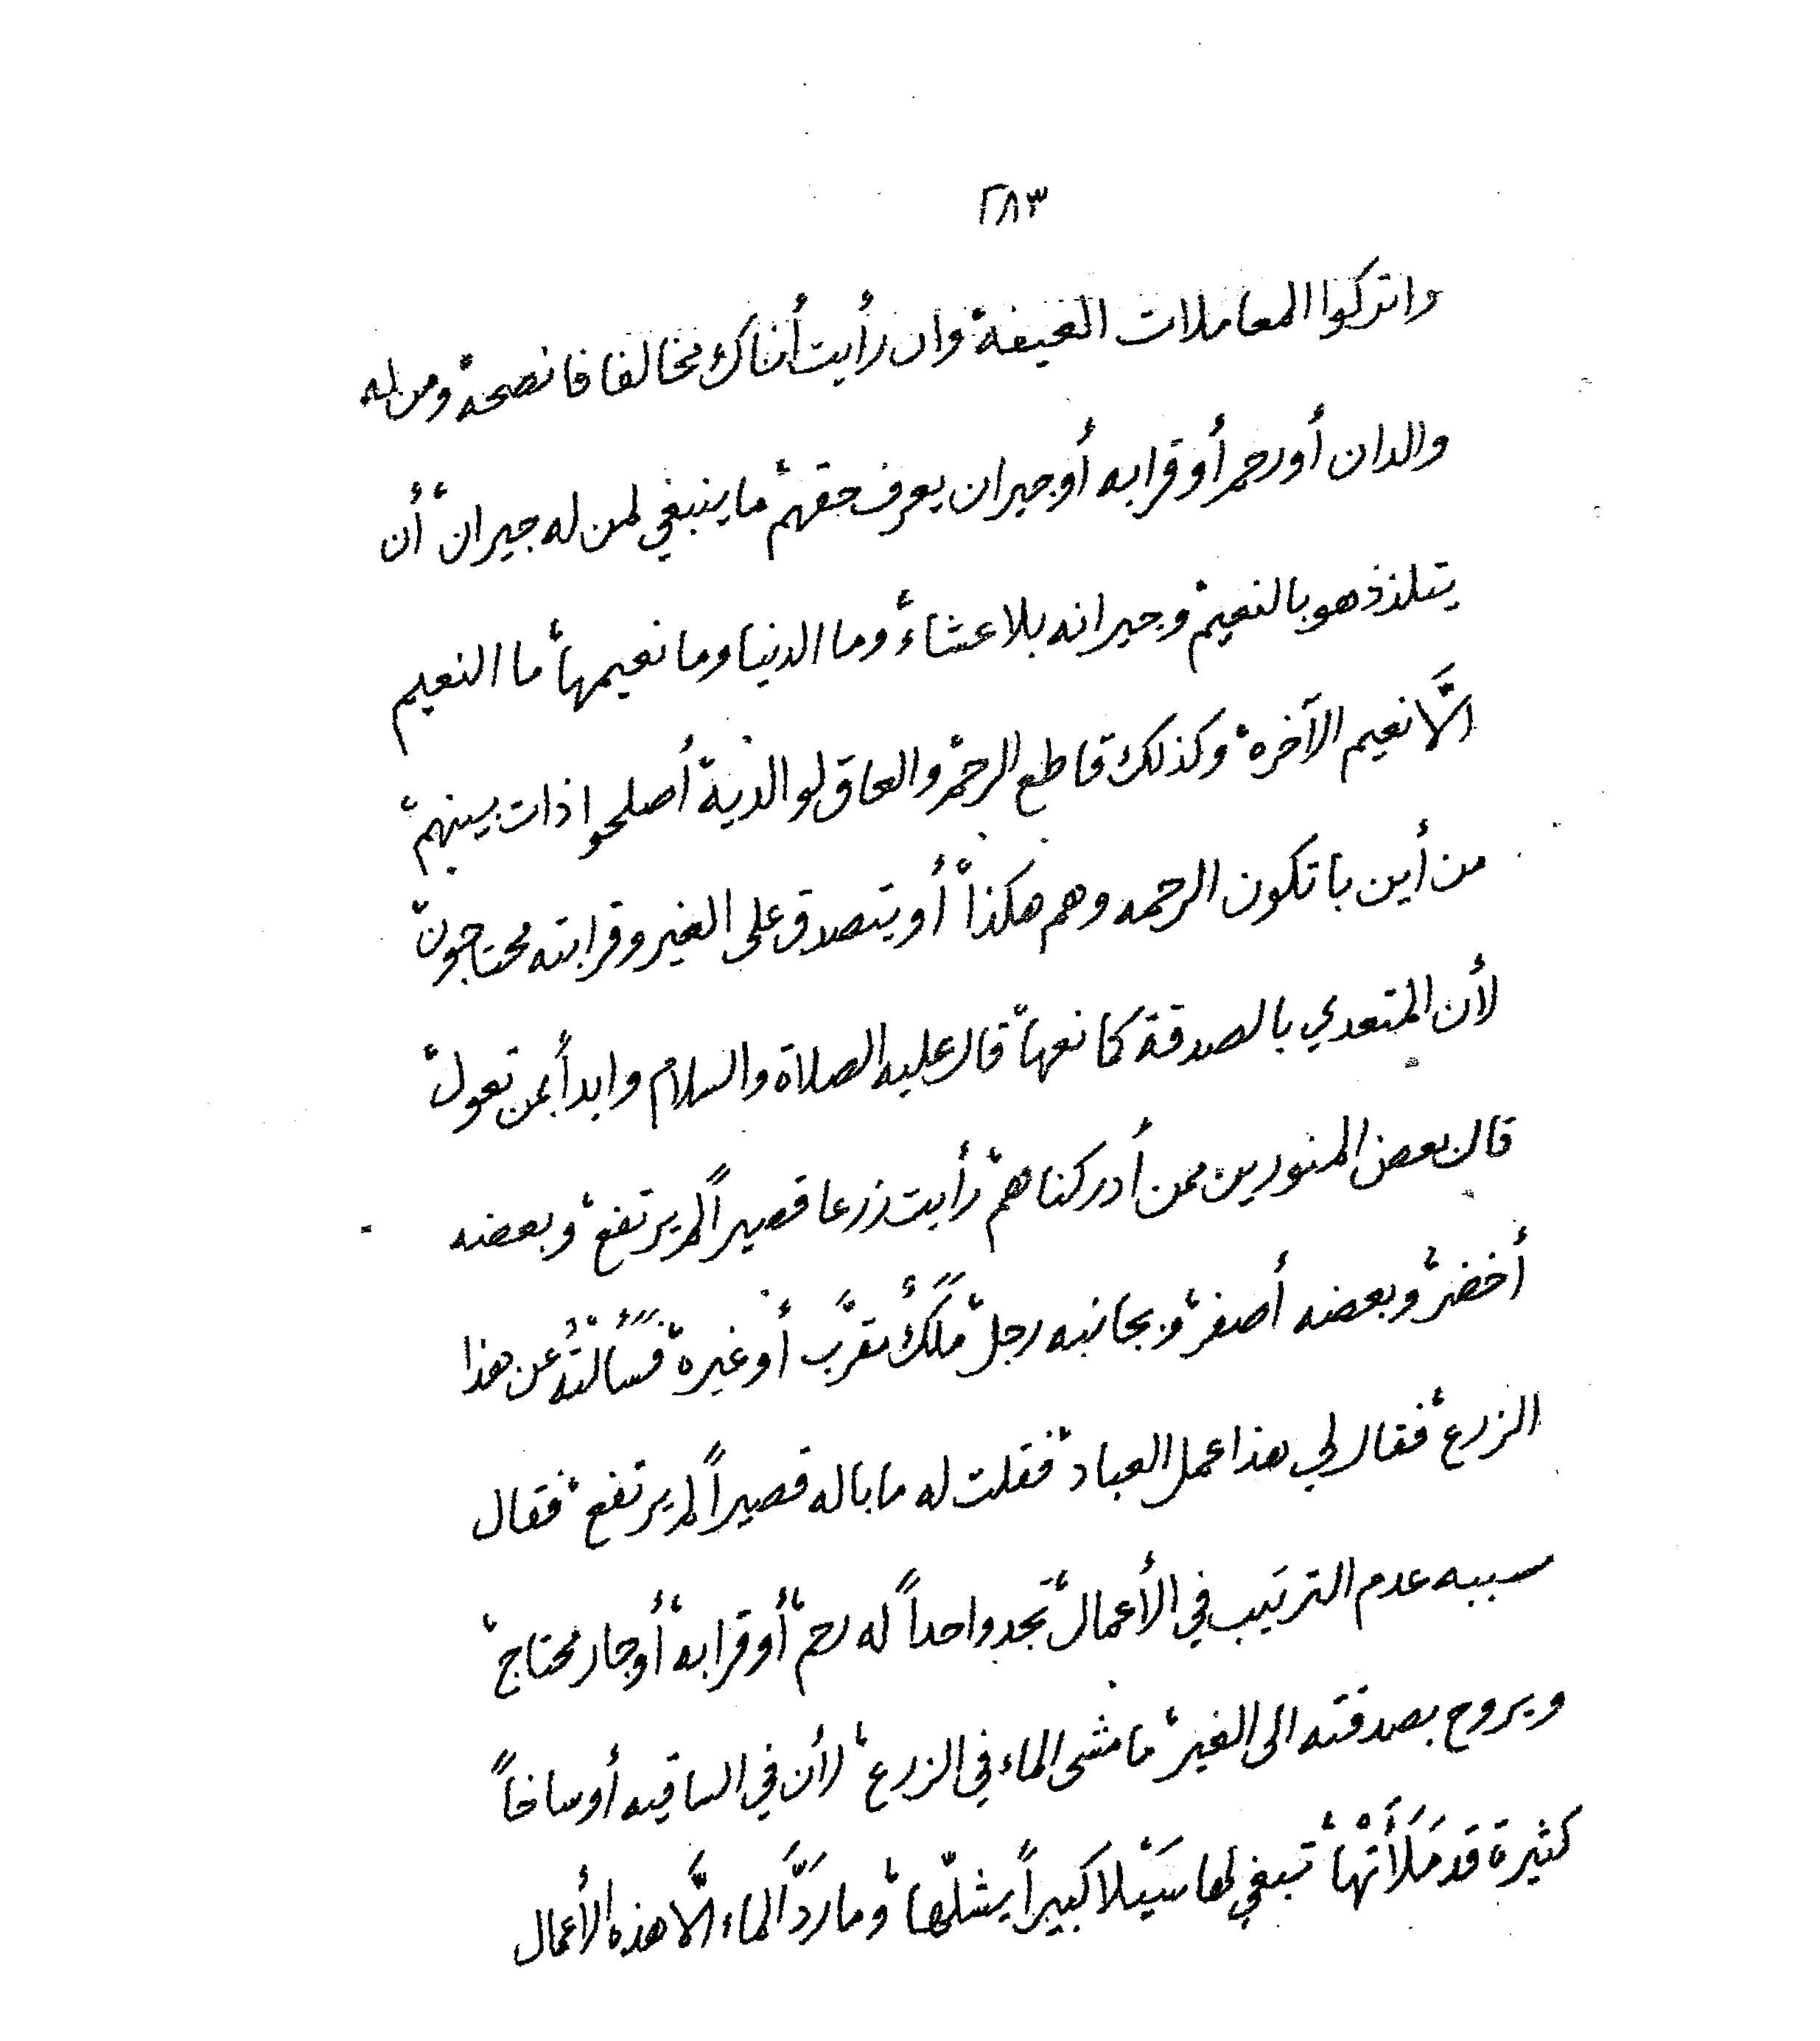 ٢٨٣
واتركوا المعاملات العيفة، وان رأيت أخاك مخالفا فانصحه، ومن له
والدان أو رحم أو قرابه أو جيران يعرف حقهم، ما ينبغي لمن له جيران، أن
يتلذذ هو بالنعيم، وجيرانه بلا عشاء، وما الدنيا وما نعيمها، ما النعيم
الَّا نعيم الآخره، وكذلك قاطع الرحم، والعاق لوالديه، أصلحوا ذات بينهم،
من أين با تكون الرحمه وهم هكذا، أو يتصدق على الغير وقرابته محتاجون،
لأن المتعدي بالصدقة كمانعها، قال عليه الصلاة والسلام وابدأ بمن تعول،
قال بعض المنورين ممن أدركناهم، رأيت زرعا قصيراً لم يرتفع، وبعضه
أخضر، وبعضه أصفر، وبجانبه رجل، مَلَكٌ مقرَّب أو غيره، فسَألتُه عن هذا
الزرع، فقال لي هذا عمل العباد، فقلت له ما باله قصيراً لم يرتفع، فقال
سببه عدم الترتيب في الأعمال، تَجد واحداً له رحم، أو قرابه، أو جار محتاج،
ويروح بصدقته الى الغير، ما مشى الماء في الزرع، لأن في الساقيه أوساخاً
كثيرة قَد مَلَأَتْها، تبغي لها سَيْلا كبيراً يشلّها، وما رَدَّ الماء الَّا هذه الأعمال